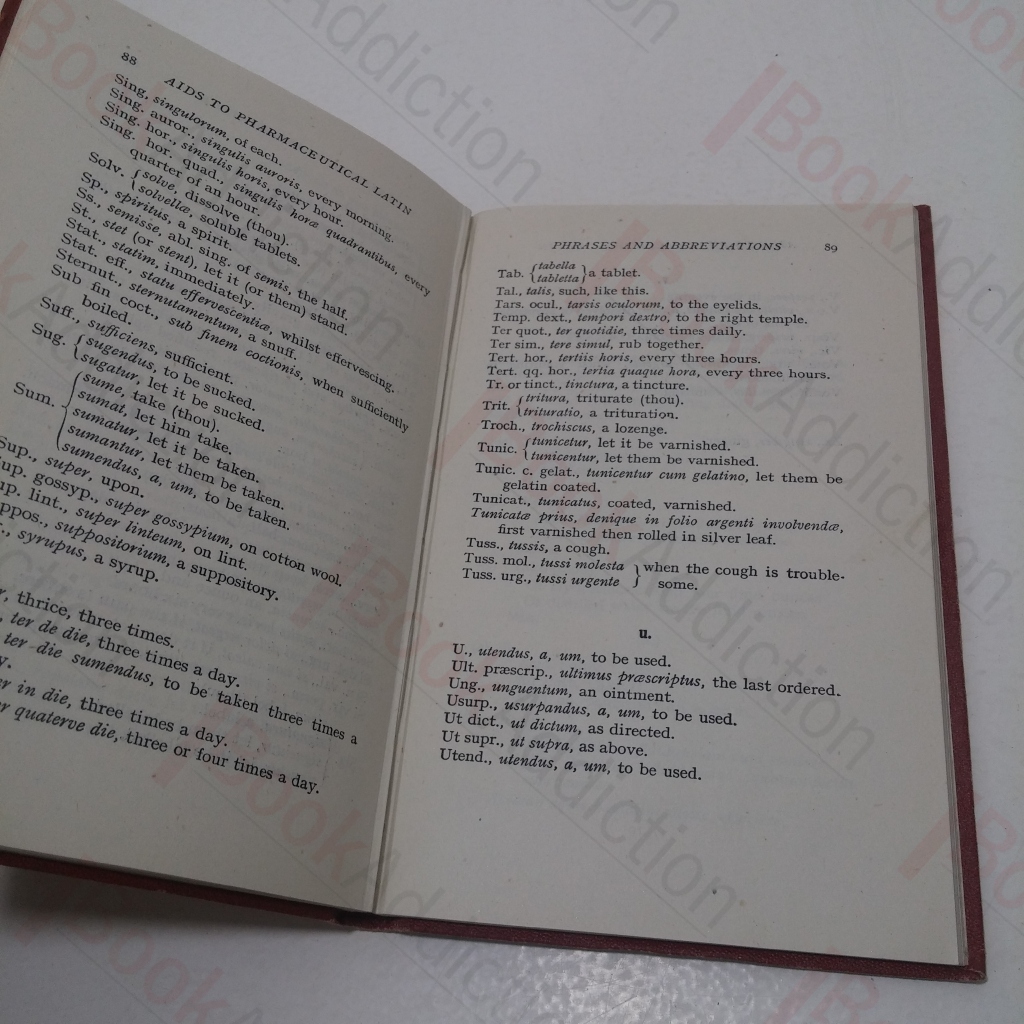 88
AIDS TO PHARMACEUTICAL LATIN
Sing. singulorum, of each.
Sing. auror., singulis auroris, every morning.
Sing. hor., singulis horis, every hour.
Sing. hor. quad., singulis horæ quadrantibus, every
quarter of an hour.
Solv. { solve, dissolve (thou).
solvellæ, soluble tablets.
Sp., spiritus, a spirit.
Ss., semisse, abl. sing. of semis, the half.
St., stet (or stent), let it (or them) stand.
Stat., statim, immediately.
Stat. eff., statu effervescentiæ, whilst effervescing.
Sternut., sternutamentum, a snuff.
Sub fin coct., sub finem coctionis, when sufficiently
boiled.
Suff., sufficiens, sufficient.
Sug. { sugendus, to be sucked.
sugatur, let it be sucked.
Sum. { sume, take (thou).
sumat, let him take.
sumatur, let it be taken.
sumantur, let them be taken.
sumendus, a, um, to be taken.
Sup., super, upon.
up. gossyp., super gossypium, on cotton wool.
up. lint., super linteum, on lint.
ppos., suppositorium, a suppository.
syrupus, a syrup.
thrice, three times.
ter de die, three times a day.
ter die sumendus, to be taken three times a
y.
er in die, three times a day.
er quaterve die, three or four times a day.
PHRASES AND ABBREVIATIONS 89
Tab. { tabella
tabletta } a tablet.
Tal., talis, such, like this.
Tars. ocul., tarsis oculorum, to the eyelids.
Temp. dext., tempori dextro, to the right temple.
Ter quot., ter quotidie, three times daily.
Ter sim., tere simul, rub together.
Tert. hor., tertiis horis, every three hours.
Tert. qq. hor., tertia quaque hora, every three hours.
Tr. or tinct., tinctura, a tincture.
Trit. { tritura, triturate (thou).
trituratio, a trituration.
Troch., trochiscus, a lozenge.
Tunic. { tunicetur, let it be varnished.
tunicentur, let them be varnished.
Tunic. c. gelat., tunicentur cum gelatino, let them be
gelatin coated.
Tunicat., tunicatus, coated, varnished.
Tunicatæ prius, denique in folio argenti involvendæ,
first varnished then rolled in silver leaf.
Tuss., tussis, a cough.
Tuss. mol., tussi molesta } when the cough is trouble-
Tuss. urg., tussi urgente } some.
U.
U., utendus, a, um, to be used.
Ult. præscrip., ultimus præscriptus, the last ordered.
Ung., unguentum, an ointment.
Usurp., usurpandus, a, um, to be used.
Ut dict., ut dictum, as directed.
Ut supr., ut supra, as above.
Utend., utendus, a, um, to be used.
BookAddiction